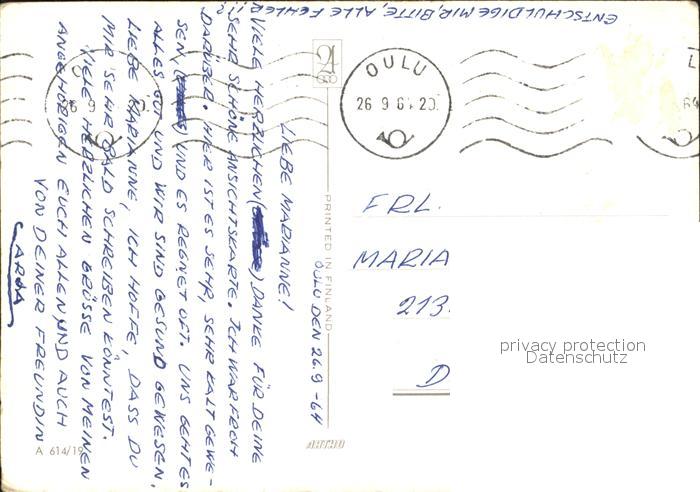 OULU DEN 26.9 -64
LIEBE MARIANNE!
VIELE HERZLICHEN DANKE FÜR DEINE
SEHR SCHÖNE ANSICHTSKARTE. ICH WAR FROH
DARÜBER. HIER IST ES SEHR, SEHR KALT GEWE-
SEN, UND ES REGNET OFT. UNS GEHT ES
ALLES GUT UND WIR SIND GESUND GEWESEN.
LIEBE MARIANNE, ICH HOFFE, DASS DU
MIR SEHR BALD SCHREIBEN KÖNNTEST.
VIELE HERZLICHEN GRÜSSE VON MEINEN
ANGEHÖRIGEN EUCH ALLEN, UND AUCH
VON DEINER FREUNDIN
ENTSCHULDIGE MIR, BITTE, ALLE FEHLER!!!
PRINTED IN FINLAND
A 614/19
OULU
26 9 64 20.
FRL.
MARIA
213.
D
privacy protection
Datenschutz